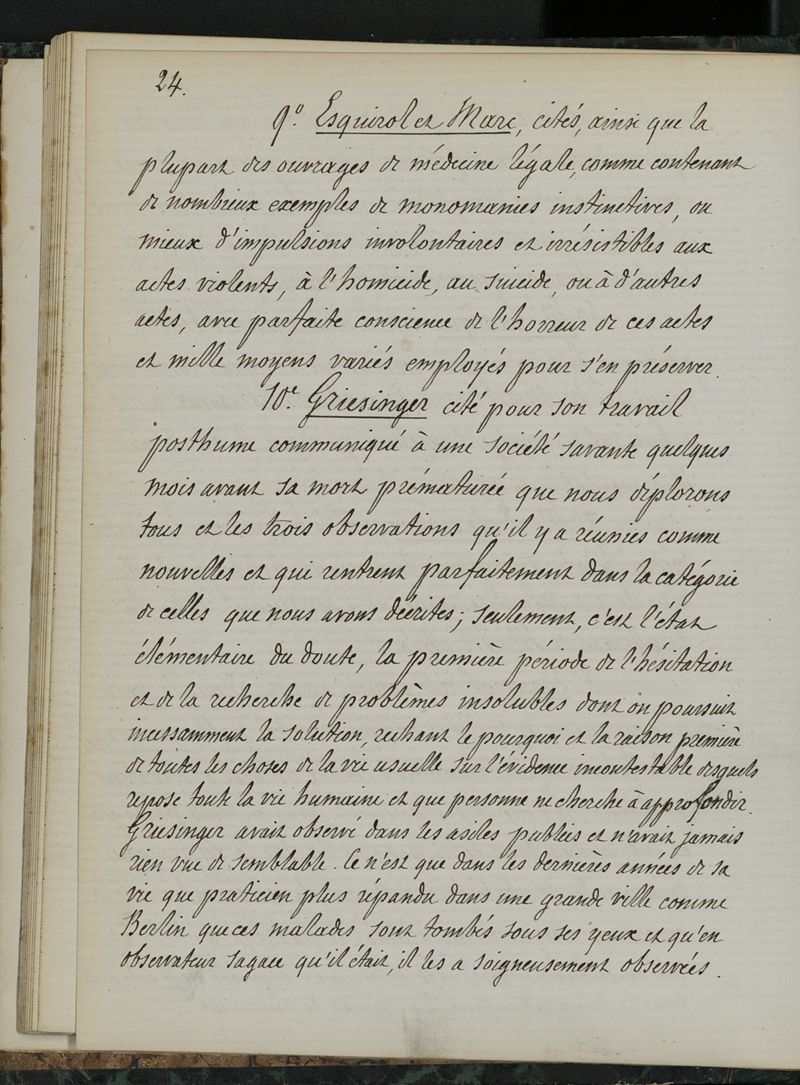 24.
9º. Esquirol et Marc, cités, ainsi que la
plupart des ouvrages de médecine légale, comme contenant
de nombreux exemples de monomanies instinctives, ou
mieux d'impulsions involontaires et irrésistibles aux
actes violents, à l'homicide, au suicide, ou à d'autres
actes, avec parfaite conscience de l'horreur de ces actes
et mille moyens variés employés pour s'en préserver.
10e. Griesinger cité pour son travail
posthume communiqué à une société savante quelques
mois avant sa mort prématurée que nous déplorons
tous et les trois observations qu'il y a réunies comme
nouvelles et qui rentrent parfaitement dans la catégorie
de celles que nous avons décrites; seulement, c'est l'état
élémentaire du doute, la première période de l'hésitation
et de la recherche de problèmes insolubles dont on poursuit
incessamment la solution, rechant le pourquoi et la raison première
de toutes les choses de la vie usuelle sur l'évidence incontestable desquels
repose toute la vie humaine et que personne ne cherche à approfondir.
Griesinger avait observé dans les asiles publics et n'avait jamais
rien vue de semblable. Ce n'est que dans les dernières années de sa
vie que praticien plus répandu dans une grande ville comme
Berlin que ces malades sont tombés sous ses yeux et qu'en
observateur sagace qu'il était, il les a soigneusement observées.